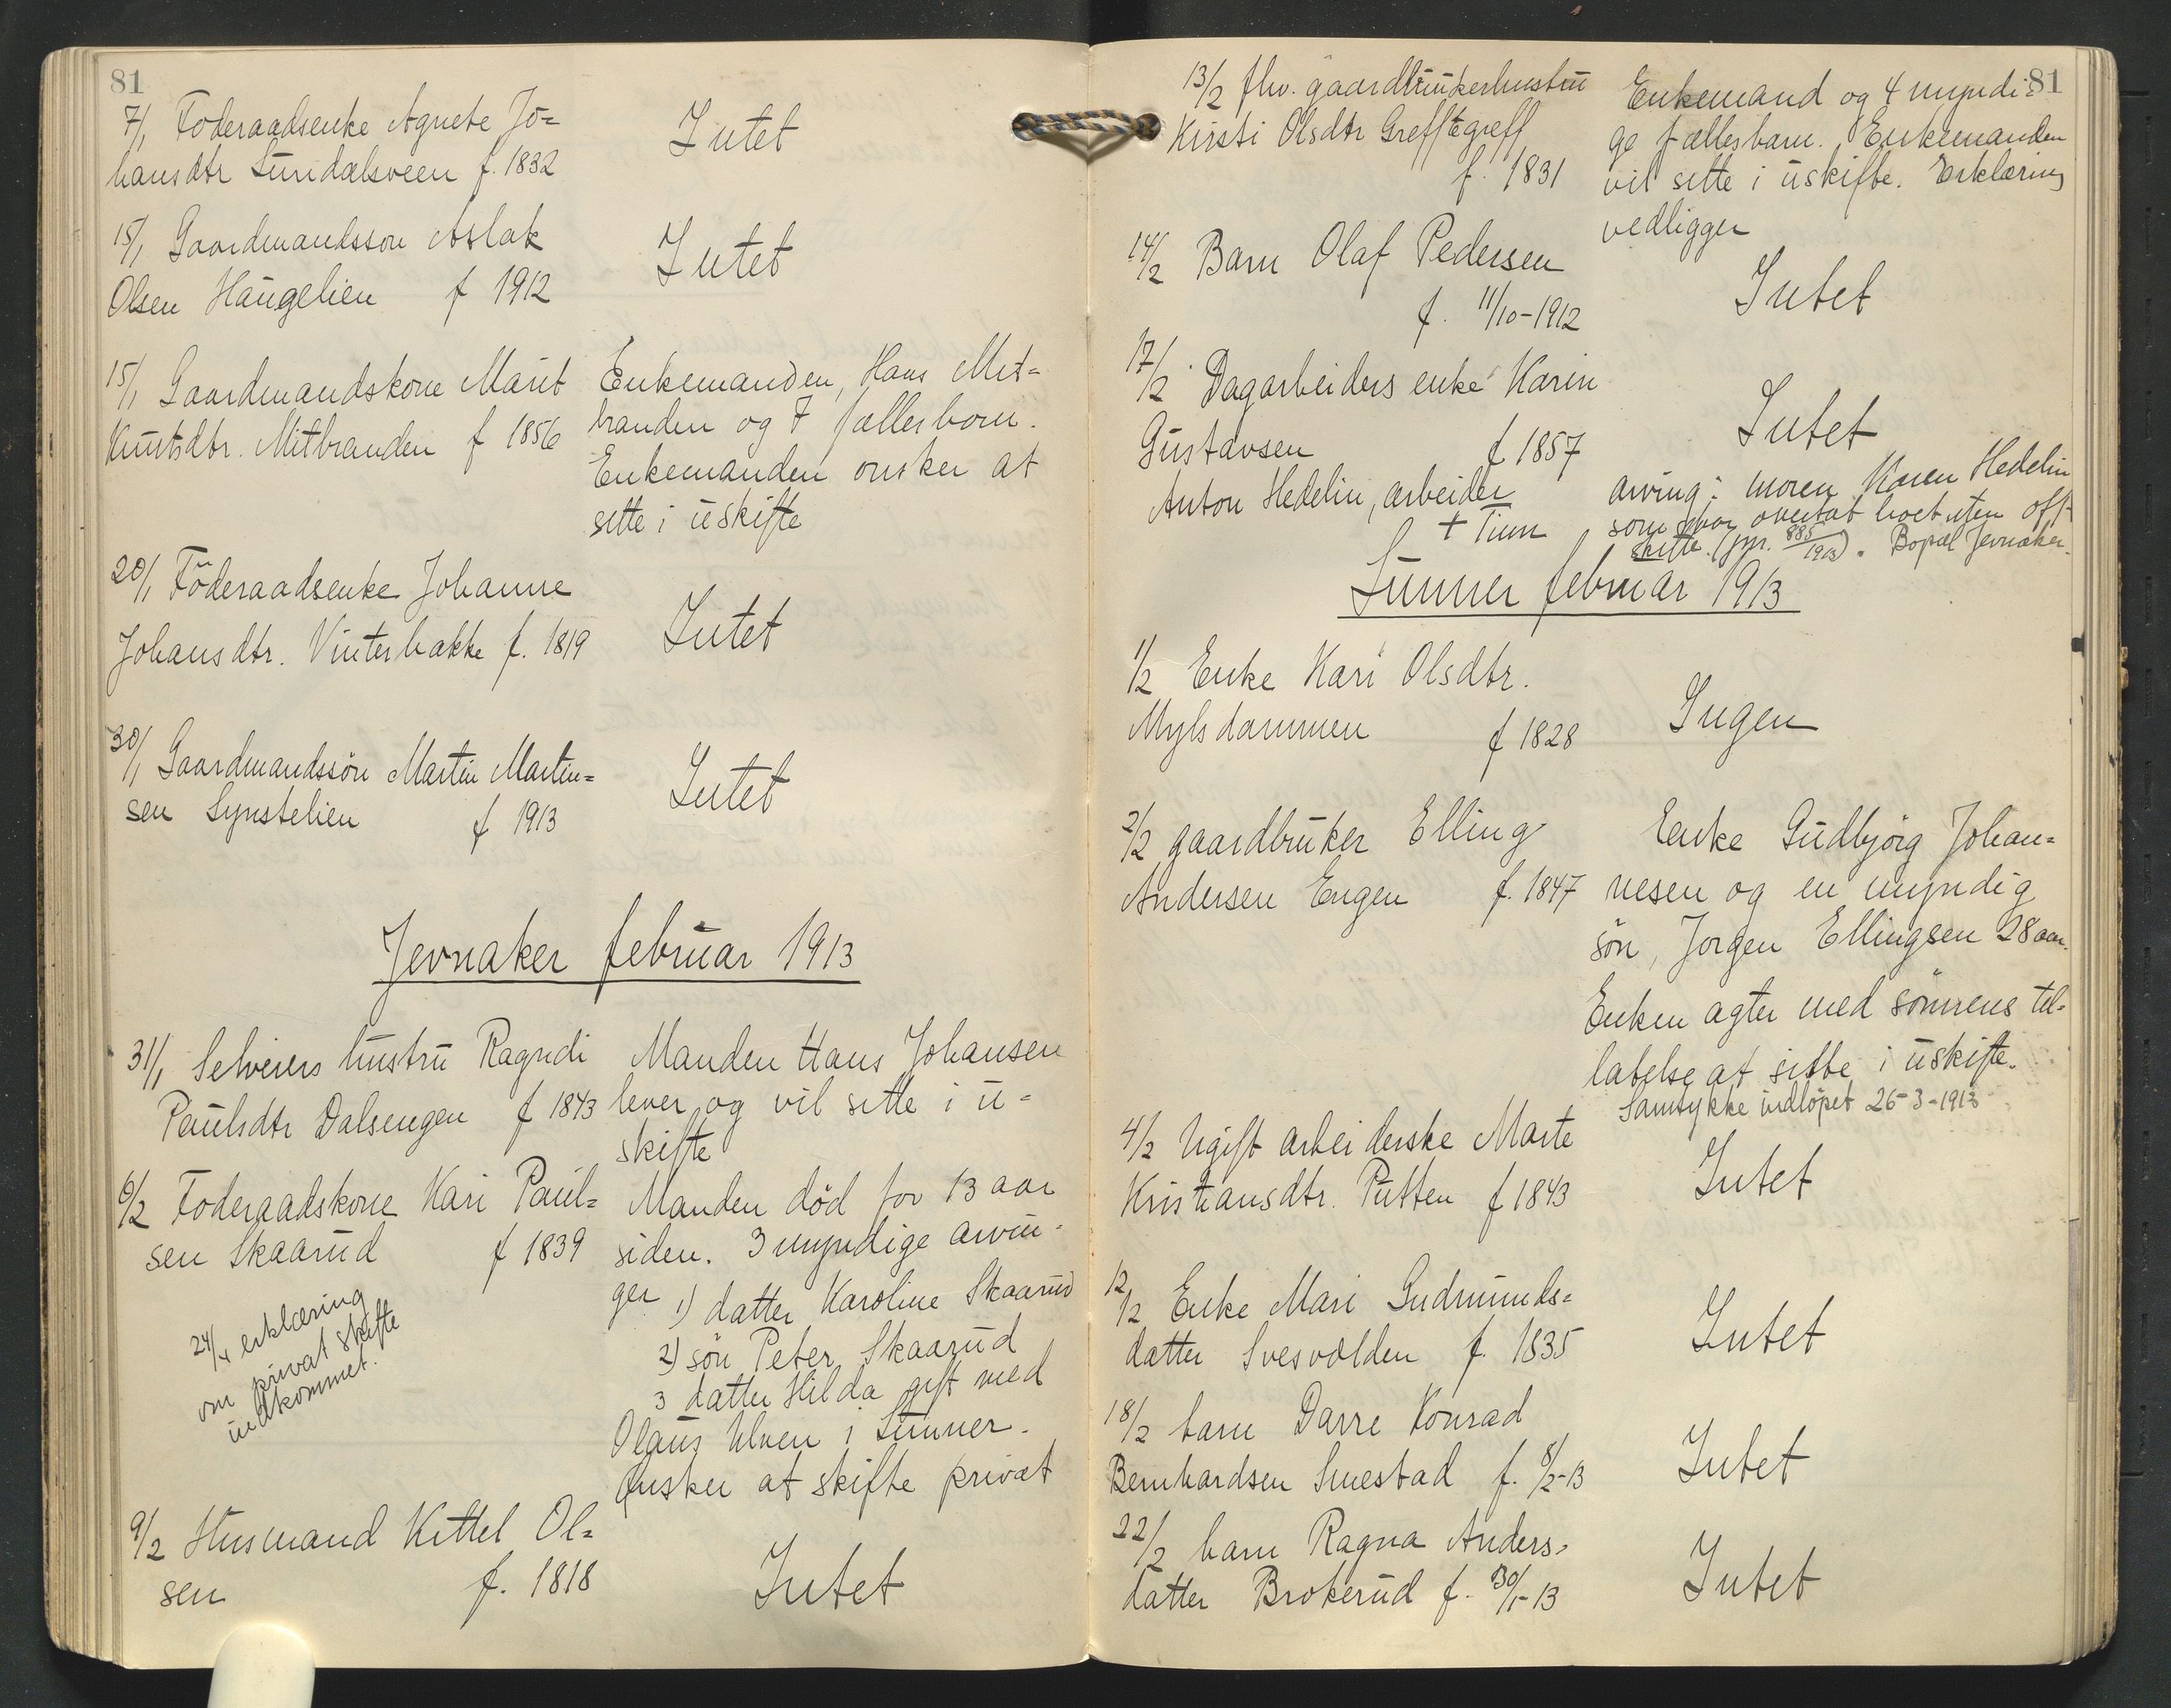 81
7/1 Föderaadsenke Agnete Jo=
hansdtr Lundalsveen f. 1832
Intet
15/1 Gaardmandsson Aslak
Olsen Haugelien f 1912
Intet
15/1 Gaardmandskone Marit
Knutsdtr. Mitbranden f 1856
Enkemanden, Hans Mit=
branden og 7 fællesborn.
Enkemanden onsker at
sitte i uskifte
20/1 Föderaadsenke Johanne
Johansdtr. Vinterbakke f. 1819
Intet
30/1 Gaardmandssön Martin Martin=
sen Synstelien f 1913
Intet
Jevnaker februar 1913
31/1 Selveiers hustru Ragndi
Paulsdtr Dalsengen f 1843
Manden Hans Johansen
lever og vil sitte i u-
skifte
6/2 Foderaadskone Kari Paul=
sen Skaarud f 1839
24/4 erklæring
om privat skifte
indkommet.
Manden död for 13 aar
siden. 3 myndige arvin-
ger 1) datter Karoline Skaarud
2) sön Peter Skaarud
3 datter Hilda gift med
Olaus Ulven i Lunner.
Ønsker at skifte privat
9/2 Husmand Kittel Ol=
sen f. 1818
Intet
81
13/2 fhv. gaardbrukerhustru
Kirsti Olsdtr Grefftegreff
f. 1831
Enkemand og 4 myndi-
ge fællesbarn. Enkemanden
vil sitte i uskifte. Erklæring
vedligger
14/2 Barn Olaf Pedersen
f. 11/10-1912
Intet
17/2 Dagarbeiders enke Karin
Gustavsen f 1857
Intet
Anton Hedelin, arbeider
+ Tinn
arving: moren Karen Hedelin
som har overtat boet uten off.
skifte. (jnr. 885/1913). Bopæl Jevnaker.
Lunner februar 1913
1/2 Enke Kari Olsdtr.
Mylsdammen f 1828
Ingen
2/2 gaardbruker Elling
Andersen Engen f. 1847
Enke Gudbjörg Johan=
nesen og en myndig
sön, Jorgen Ellingsen 28 aar.
Enken agter med sönnens til-
latelse at sitte i uskifte.
Samtykke indlöpet 26-3-1913
4/2 Ugift arbeiderske Marte
Kristiansdtr. Putten f 1843
Intet
12/2 Enke Mari Gudmunds=
datter Svesvolden f. 1835
Intet
18/2 barn Darre Konrad
Bernhardsen Smestad f. 8/2-13
Intet
22/2 barn Ragna Anders=
datter Brokerud f. 30/1-13
Intet